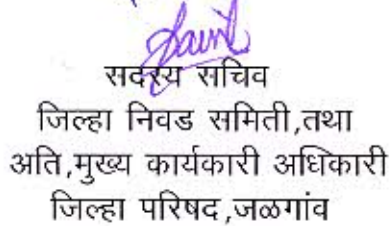 सदस्य सचिव
जिल्हा निवड समिती,तथा
अति,मुख्य कार्यकारी अधिकारी
जिल्हा परिषद,जळगांव